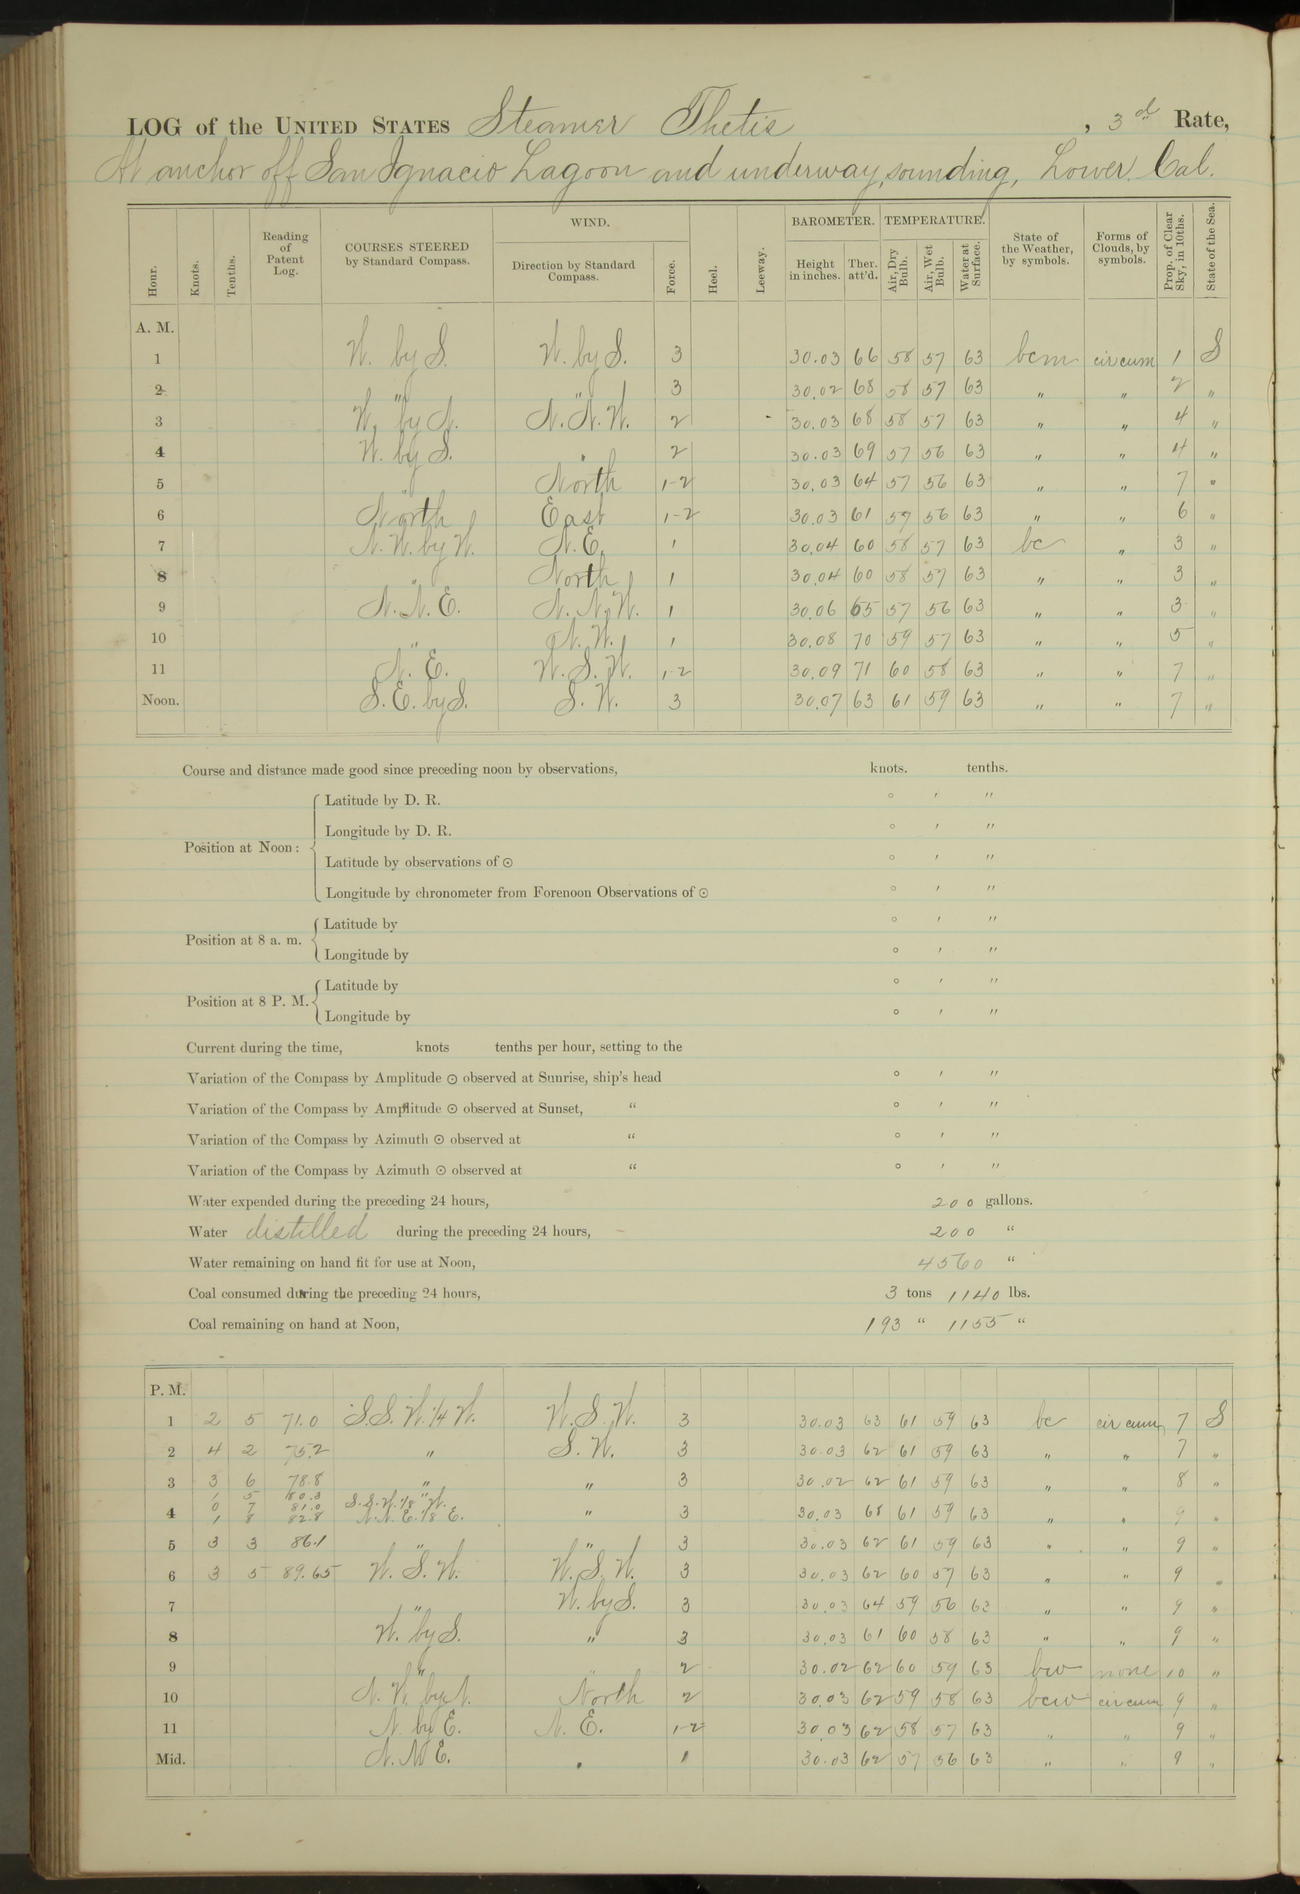 LOG of the UNITED STATES Steamer Thetis , 3rd Rate,
At anchor off San Ignacio Lagoon and underway, sounding, Lower Cal.
Hour. Knots. Tenths. Reading of Patent Log. COURSES STEERED by Standard Compass. WIND. Direction by Standard Compass. Force. Heel. Leeway. BAROMETER. Height in inches. Ther. att'd. TEMPERATURE. Air, Dry Bulb. Air, Wet Bulb. Water at Surface. State of the Weather, by symbols. Forms of Clouds, by symbols. Prop. of Clear Sky, in 10ths. State of the Sea.
A. M.
1 W. by S. W. by S. 3 30.03 66 58 57 63 bcm cir cum 1 S
2 " " 3 30.02 68 58 57 63 " " 2 "
3 W. by N. N.N.W. 2 30.03 68 58 57 63 " " 4 "
4 W. by S. " 2 30.03 69 57 56 63 " " 4 "
5 " North 1-2 30.03 64 57 56 63 " " 7 "
6 North East 1-2 30.03 61 57 56 63 " " 6 "
7 N.W. by W. N.E. 1 30.04 60 58 57 63 bc " 3 "
8 " North 1 30.04 60 58 57 63 " " 3 "
9 N.N.E. N.N.W. 1 30.06 65 57 56 63 " " 3 "
10 " N.W. 1 30.08 70 59 57 63 " " 5 "
11 N.E. W.S.W. 1-2 30.09 71 60 58 63 " " 7 "
Noon. S.E. by S. S.W. 3 30.07 63 61 59 63 " " 7 "
Course and distance made good since preceding noon by observations, knots. tenths.
Position at Noon: Latitude by D. R. ° ′ ″
Longitude by D. R. ° ′ ″
Latitude by observations of ⊙ ° ′ ″
Longitude by chronometer from Forenoon Observations of ⊙ ° ′ ″
Position at 8 a. m. Latitude by ° ′ ″
Longitude by ° ′ ″
Position at 8 P. M. Latitude by ° ′ ″
Longitude by ° ′ ″
Current during the time, knots tenths per hour, setting to the
Variation of the Compass by Amplitude ⊙ observed at Sunrise, ship's head ° ′ ″
Variation of the Compass by Amplitude ⊙ observed at Sunset, " ° ′ ″
Variation of the Compass by Azimuth ⊙ observed at " ° ′ ″
Variation of the Compass by Azimuth ⊙ observed at " ° ′ ″
Water expended during the preceding 24 hours, 200 gallons.
Water distilled during the preceding 24 hours, 200 "
Water remaining on hand fit for use at Noon, 4560 "
Coal consumed during the preceding 24 hours, 3 tons 1140 lbs.
Coal remaining on hand at Noon, 193 " 1155 "
P. M.
1 2 5 71.0 S.S.W. 1/4 W. W.S.W. 3 30.03 63 61 59 63 bc cir cum 7 S
2 4 2 75.2 " S.W. 3 30.03 62 61 59 63 " " 7 "
3 3 6 78.8 " " 3 30.02 62 61 59 63 " " 8 "
1 5 80.3 "
0 7 81.0 S.S.W. 1/8 W.
4 1 8 82.8 N.N.E. 1/8 E. " 3 30.03 68 61 59 63 " " 9 "
5 3 3 86.1 " " 3 30.03 62 61 59 63 " " 9 "
6 3 5 89.65 W.S.W. W.S.W. 3 30.03 62 60 57 63 " " 9 "
7 " W. by S. 3 30.03 64 59 56 63 " " 9 "
8 W. by S. " 3 30.03 61 60 58 63 " " 9 "
9 " " 2 30.02 62 60 59 63 bw none 10 "
10 N.W. by N. North 2 30.03 62 59 58 63 bcw cir cum 9 "
11 N. by E. N.E. 1-2 30.03 62 58 57 63 " " 9 "
Mid. N.N.E. " 1 30.03 62 57 56 63 " " 9 "